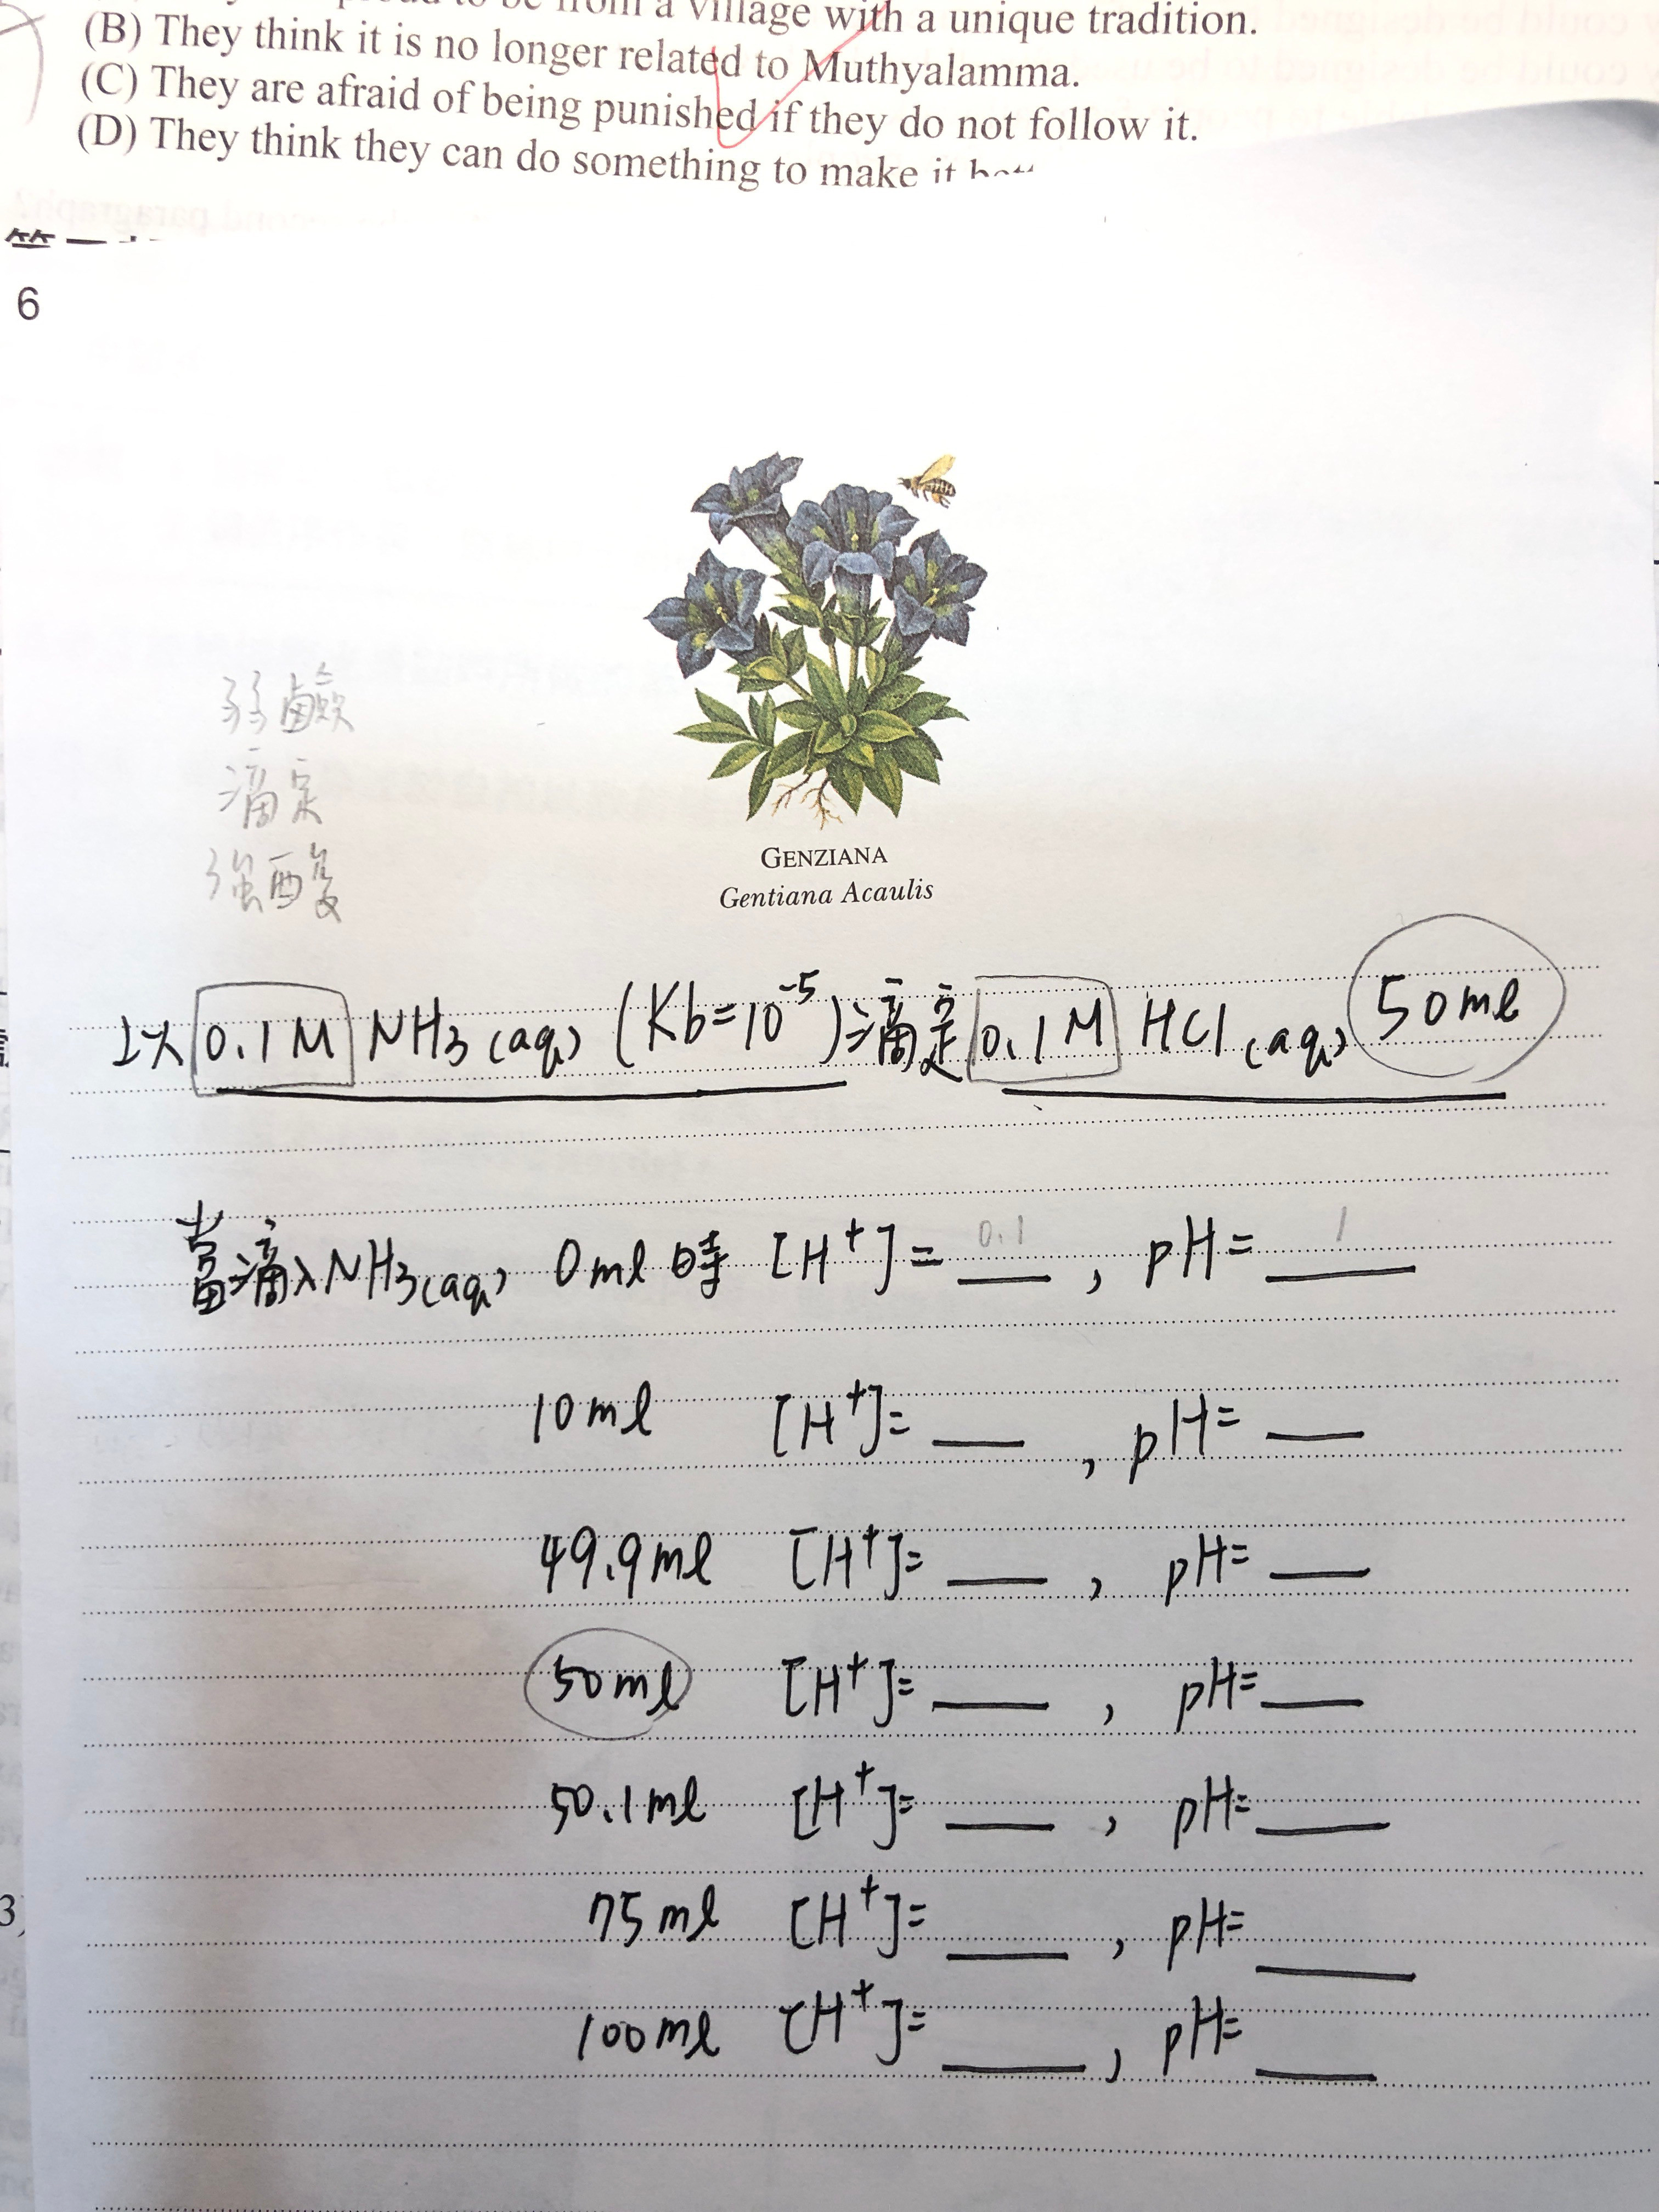 a village with a unique tradition.
(B) They think it is no longer related to Muthyalamma.
(C) They are afraid of being punished if they do not follow it.
(D) They think they can do something to make it
6
弱鹼
滴定
強酸
GENZIANA
Gentiana Acaulis
以 0.1M NH3(aq) (Kb=10^-5) 滴定 0.1M HCl(aq) 50ml
當滴入NH3(aq) 0ml 時 [H+]= 0.1 , pH= 1
10ml [H+]= __ , pH= __
49.9ml [H+]= __ , pH= __
50ml [H+]= __ , pH= __
50.1ml [H+]= __ , pH= __
75ml [H+]= __ , pH= __
100ml [H+]= __ , pH= __